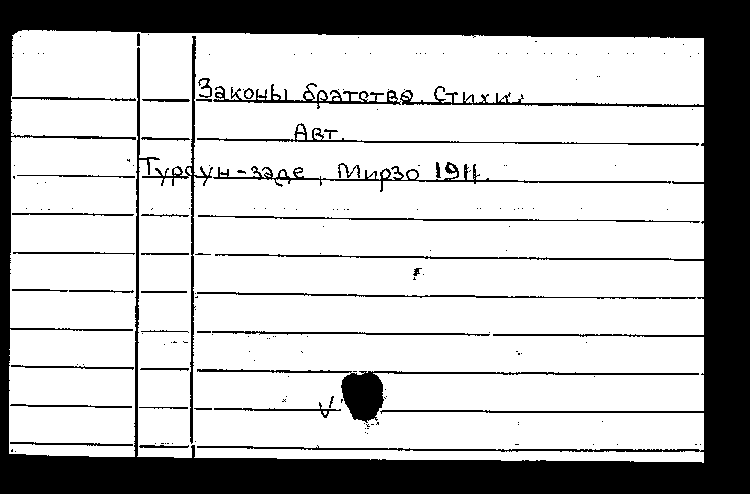 Законы братства. Стихи.
Авт.
Турсун-заде, Мирзо 1911.